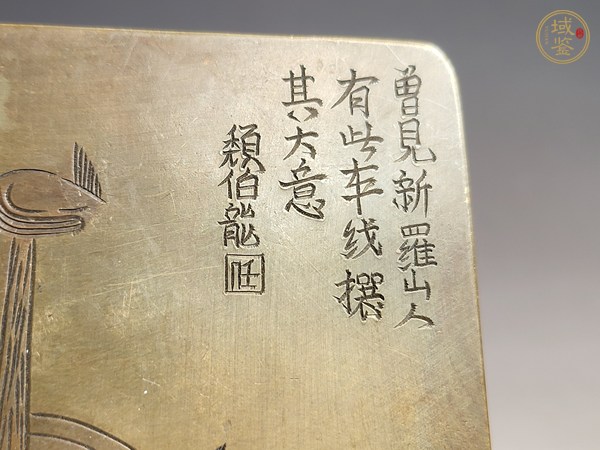 曾見新羅山人
有此本线撰
其大意
頪伯龍
任
域鉴